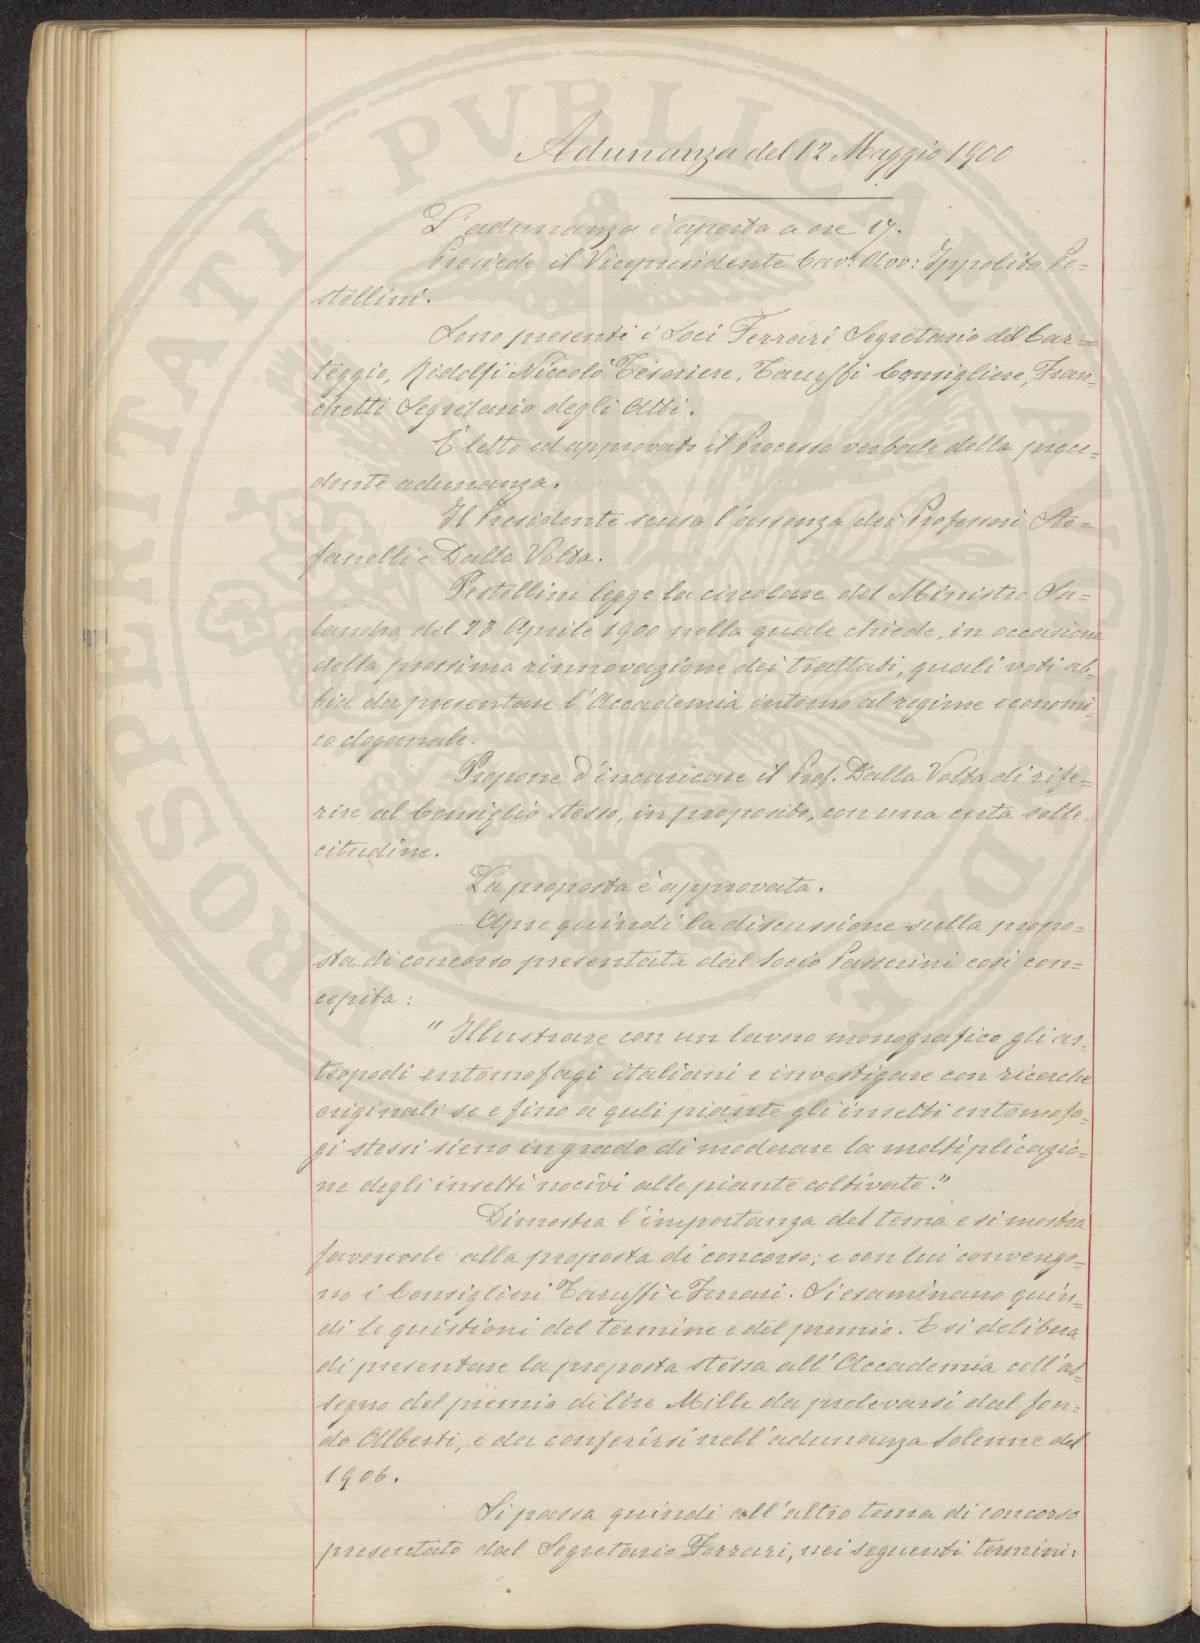 Adunanza del 12 Maggio 1900
L'adunanza è aperta a ore 17.
Presiede il Vicepresidente Cav: Avv: Ippolito Pe=
stellini.
Sono presenti i Soci Ferrari Segretario del Car=
teggio, Ridolfi Niccolò Tesoriere, Taruffi Consigliere, Fran=
chetti Segretario degli Atti.
È letto ed approvato il Processo verbale della prece=
dente adunanza.
Il Presidente scusa l'assenza dei Professori Ste=
fanelli e Dalla Volta.
Pestellini legge la circolare del Ministro Sa=
landra del 23 Aprile 1900 nella quale chiede, in occasione
della prossima rinnovazione dei trattati, quali voti ab=
bia da presentare l'Accademia intorno al regime economi=
co doganale.
Propone d'incaricare il Prof. Dalla Volta di rife=
rire al Consiglio stesso, in proposito, con una certa solle=
citudine.
La proposta è approvata.
Apre quindi la discussione sulla propo=
sta di concorso presentata dal Socio Passerini così con=
cepita:
"Illustrare con un lavoro monografico gli ar=
tropodi entomofagi italiani e investigare con ricerche
originali se e fino a quli piante gli insetti entomofa=
gi stessi sieno in grado di moderare la moltiplicazio=
ne degli insetti nocivi alle piante coltivate."
Dimostra l'importanza del tema e si mostra
favorevole alla proposta di concorso; e con lui convengo=
no i Consiglieri Taruffi e Ferrari. Si esaminano quin=
di le quistioni del termine e del premio. E si delibera
di presentare la proposta stessa all'Accademia coll'as=
segno del premio di lire Mille da prelevarsi dal fon=
do Alberti, e da conferirsi nell'adunanza solenne del
1906.
Si passa quindi all'altro tema di concorso
presentato dal Segretario Ferrari, nei seguenti termini:
PROSPERITATI PVBLICAE AVGENDAE